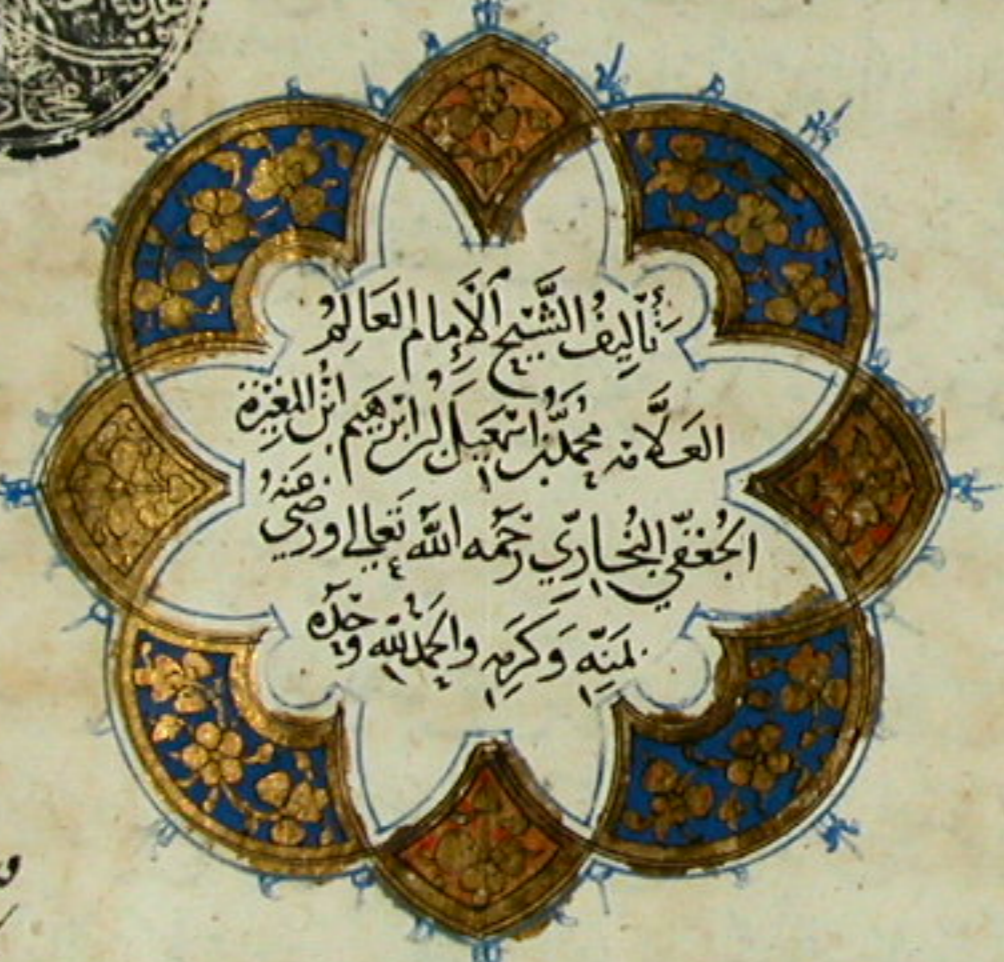 تَأْلِيفُ الشَّيْخِ الْإِمَامِ العَالِمِ
العَلَّامَة مُحَمَّد بْن اسْمَعِيلَ بن ابْرَهِيم ابْنِ المُغِيْرَة
الجُعْفِيّ البُخَارِيّ رَحِمَهُ اللَّهُ تَعَالَى وَرَضِيَ عَنْهُ
بِمَنِّهِ وَكَرَمِهِ وَالحَمْدُ لِلَّهِ وَحْدَهُ